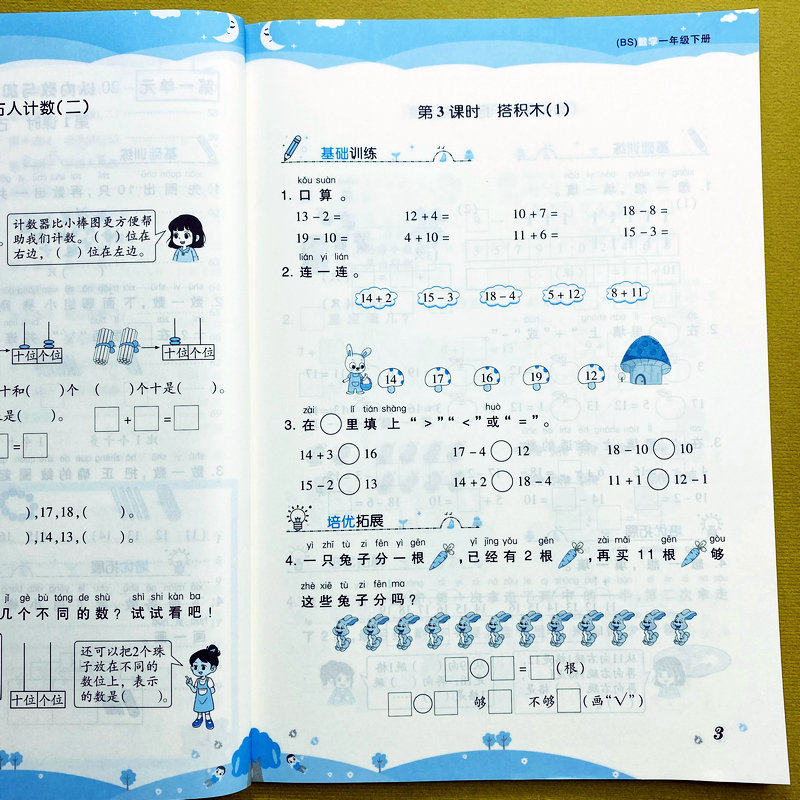 古人计数(二)
计数器比小棒图更方便帮
助我们计数。( )位在
右边，( )位在左边。
十位个位 十位个位
十和( )个 ( )个十是( )。
是( )。
+ =
=
),17,18,( )。
),14,13,( )。
jǐ gè bù tóng de shù shì shi kàn ba
几个不同的数？试试看吧！
还可以把2个珠
子放在不同的
数位上，表示
的数是( )。
十位个位
(BS)数学一年级下册
第3课时 搭积木(1)
基础训练
kǒu suàn
1. 口算。
13－2＝ 12＋4＝ 10＋7＝ 18－8＝
19－10＝ 4＋10＝ 11＋6＝ 15－3＝
lián yi lián
2. 连一连。
14＋2 15－3 18－4 5＋12 8＋11
14 17 16 19 12
zài lǐ tián shàng huò
3. 在○里填上“＞”“＜”或“＝”。
14＋3○16 17－4○12 18－10○10
15－2○13 14＋2○18－4 11＋1○12－1
培优拓展
yì zhī tù zi fēn yì gēn yǐ jīng yǒu gēn zài mǎi gēn gòu
4. 一只兔子分一根，已经有2根，再买11根够
zhè xiē tù zi fēn ma
这些兔子分吗？
□○□＝□(根)
□○□ 够□ 不够□(画“√”)
3